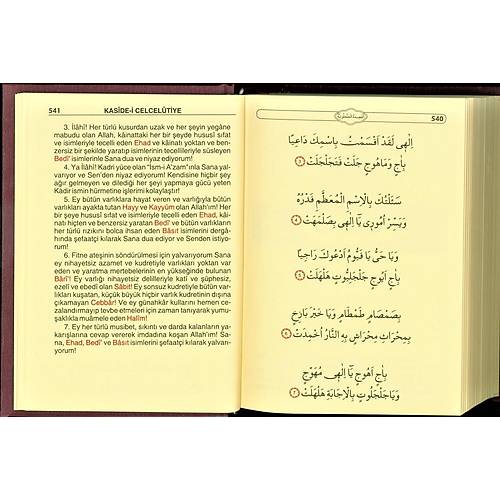 541 KASİDE-İ CELCELÛTİYE
3. İlâhî! Her türlü kusurdan uzak ve her şeyin yegâne
mabudu olan Allah, kâinattaki her bir şeyde hususî sıfat
ve isimleri ile tecelli eden Ehad ve kâinatı yoktan ve ben-
zersiz bir şekilde yaratıp isimlerinin tecellileriyle süsleyen
Bedî' isimlerinle Sana dua ve niyaz ediyorum!
4. Ya İlâhî! Kadri yüce olan "İsm-i A'zam"ınla Sana yal-
varıyor ve Sen'den niyaz ediyorum! Kendisine hiçbir şey
ağır gelmeyen ve dilediği her şeyi yapmaya gücü yeten
Kadîr ismin hürmetine işlerimi kolaylaştır!
5. Ey bütün varlıklara hayat veren ve varlığıyla bütün
varlıkları ayakta tutan Hayy ve Kayyûm olan Allah'ım! Her
bir şeye hususî sıfat ve isimleriyle tecelli eden Ehad, kâi-
natı hiçten ve benzersiz yaratan Bedî' ve bütün varlıkların
her türlü rızkını bolca ihsan eden Bâsıt isimlerini dergâ-
hında şefaatçi kılarak Sana dua ediyor ve Senden istiyo-
rum!
6. Fitne ateşinin söndürülmesi için yalvarıyorum Sana
ey nihayetsiz azamet ve kudretiyle varlıkları yoktan var
eden ve yaratma mertebelerinin en yükseğinde bulunan
Bârî'! Ey varlığı nihayetsiz delilleriyle katî ve şüphesiz,
ezelî ve ebedî olan Sâbit! Ey sonsuz kudretiyle bütün var-
lıkları kuşatan, küçük büyük hiçbir varlık kudretinin dışına
çıkamayan Cebbâr! Ve ey günahkâr kullarını hemen ce-
zalandırmayıp tevbe etmeleri için zaman tanıyarak yumu-
şaklıkla muamele eden Halîm!
7. Ey her türlü musibet, sıkıntı ve darda kalanların ya-
karışlarına cevap vererek imdadına koşan Allah'ım! Sa-
na, Ehad, Bedî' ve Bâsıt isimlerini şefaatçi kılarak yalvarı-
yorum!
540
اِلٰهِى لَقَدْ اَقْسَمْتُ بِاِسْمِكَ دَاعِيًا
بِاٰجٍ وَمَاهُوجٍ جَلَتْ فَتَجَلْجَلَتْ
سَئَلْتُكَ بِالْاِسْمِ الْمُعَظَّمِ قَدْرُهُ
وَيَسِّرْ اُمُورِى يَٓا اِلٰهِى بِصَلْمَهَتْ
وَيَا حَىُّ يَا قَيُّومُ اَدْعُوكَ رَاجِيًا
بِاٰجٍ اَيُوجٍ جَلْجَلِيُّوتٍ هَلْهَلَتْ
بِصَمْصَامٍ طَمْطَامٍ وَيَا خَيْرَ بَازِخٍ
بِمِحْرَاثٍ مِحْرَاشٍ بِهِ النَّارُ اُخْمِدَتْ
بِاٰجٍ اَهُوجٍ يَٓا اِلٰهِى مُهَوِّجٍ
وَيَا جَلْجَلُوتٍ بِالْاِجَابَةِ هَلْهَلَتْ